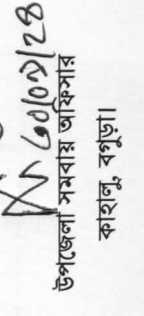 ৩০/০১/২৪
উপজেলা সমবায় অফিসার
কাহালু, বগুড়া।